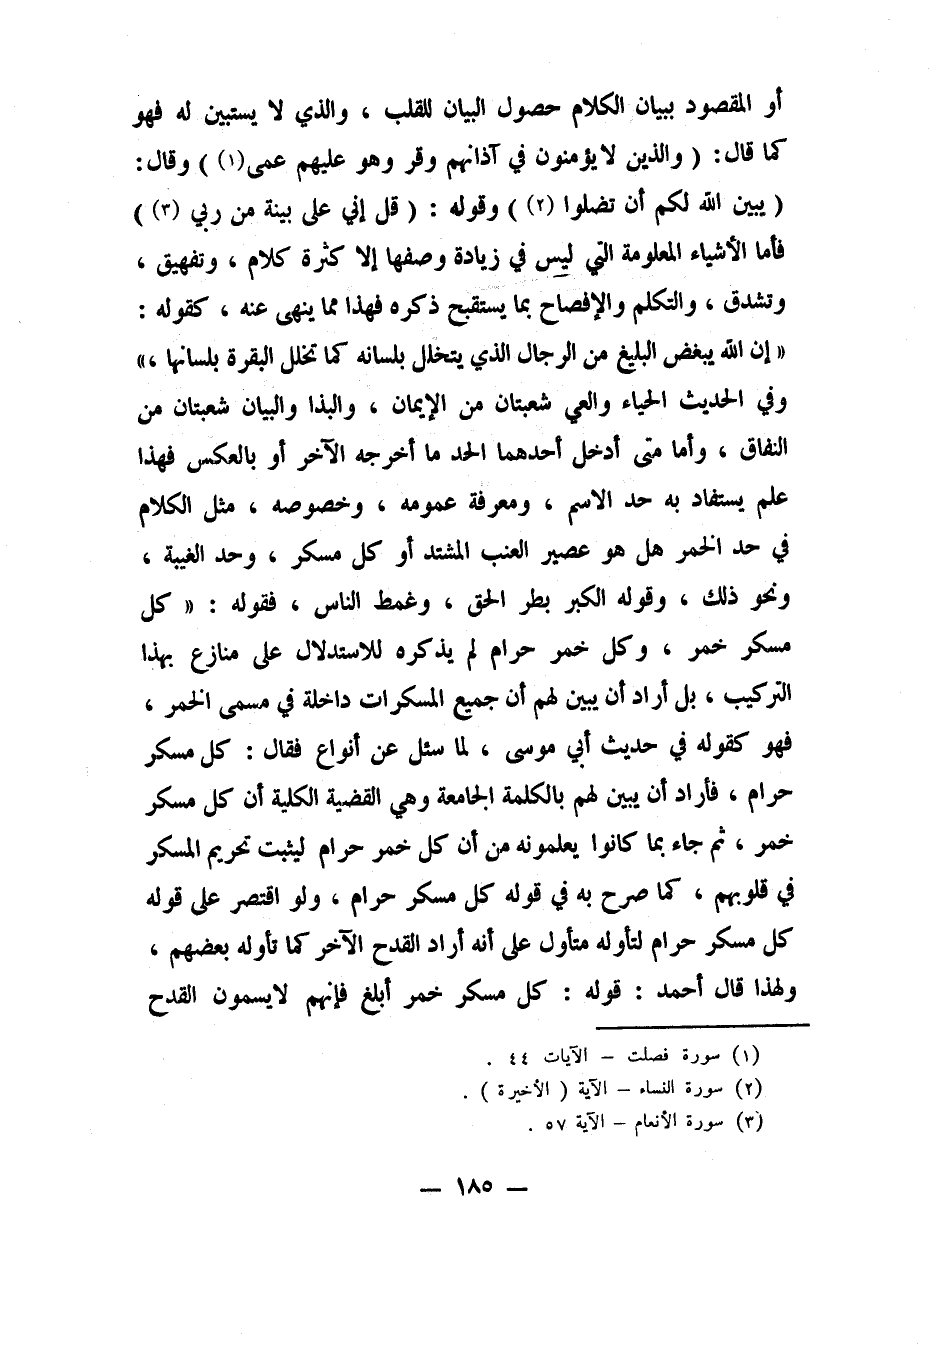 أو المقصود ببيان الكلام حصول البيان للقلب ، والذي لا يستبين له فهو
كما قال: ( والذين لا يؤمنون في آذانهم وقر وهو عليهم عمى(١) ) وقال:
( يبين الله لكم أن تضلوا (٢) ) وقوله : ( قل إني على بينة من ربي (٣) )
فأما الأشياء المعلومة التي ليس في زيادة وصفها إلا كثرة كلام ، وتفهيق ،
وتشدق ، والتكلم والإفصاح بما يستقبح ذكره فهذا مما ينهى عنه ، كقوله :
« إن الله يبغض البليغ من الرجال الذي يتخلل بلسانه كما تخلل البقرة بلسانها ،»
وفي الحديث الحياء والعي شعبتان من الإيمان ، والبذا والبيان شعبتان من
النفاق ، وأما متى أدخل أحدهما الحد ما أخرجه الآخر أو بالعكس فهذا
علم يستفاد به حد الاسم ، ومعرفة عمومه ، وخصوصه ، مثل الكلام
في حد الخمر هل هو عصير العنب المشتد أو كل مسكر ، وحد الغيبة ،
ونحو ذلك ، وقوله الكبر بطر الحق ، وغمط الناس ، فقوله : « كل
مسكر خمر ، وكل خمر حرام لم يذكره للاستدلال على منازع بهذا
التركيب ، بل أراد أن يبين لهم أن جميع المسكرات داخلة في مسمى الخمر ،
فهو كقوله في حديث أبي موسى ، لما سئل عن أنواع فقال : كل مسكر
حرام ، فأراد أن يبين لهم بالكلمة الجامعة وهي القضية الكلية أن كل مسكر
خمر ، ثم جاء بما كانوا يعلمونه من أن كل خمر حرام ليثبت تحريم المسكر
في قلوبهم ، كما صرح به في قوله كل مسكر حرام ، ولو اقتصر على قوله
كل مسكر حرام لتأوله متأول على أنه أراد القدح الآخر كما تأوله بعضهم ،
ولهذا قال أحمد : قوله : كل مسكر خمر أبلغ فإنهم لايسمون القدح
(١) سورة فصلت – الآيات ٤٤ .
(٢) سورة النساء – الآية ( الأخيرة ) .
(٣) سورة الأنعام – الآية ٥٧ .
– ١٨٥ –